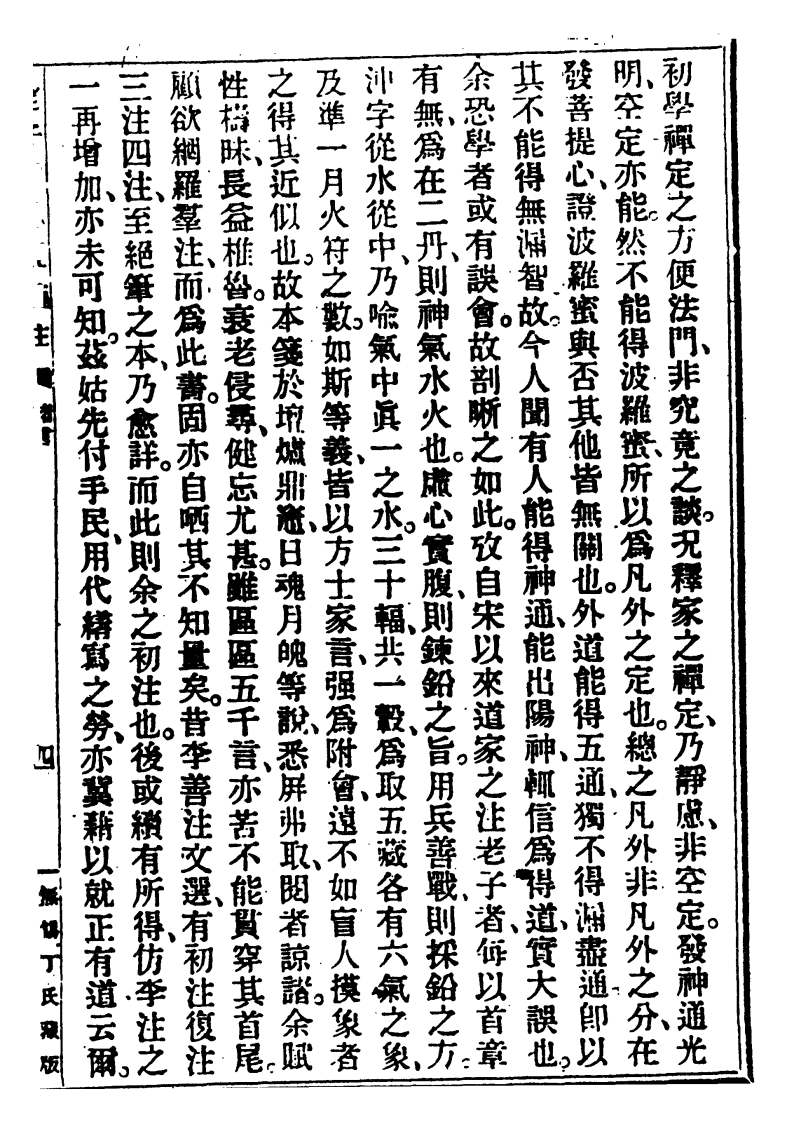 初學禪定之方便法門、非究竟之談。况釋家之禪定、乃靜慮、非空定。發神通光
明、空定亦能。然不能得波羅蜜、所以爲凡外之定也。總之凡外非凡外之分、在
發菩提心、證波羅蜜與否其他皆無關也。外道能得五通、獨不得漏盡通、卽以
其不能得無漏智故。今人聞有人能得神通、能出陽神、輒信爲得道、實大誤也。
余恐學者或有誤會。故剖晰之如此。攷自宋以來道家之注老子者、每以首章
有無、爲在二丹、則神氣水火也。虛心實腹、則鍊鉛之旨。用兵善戰、則採鉛之方。
沖字從水從中、乃喩氣中眞一之水。三十輻、共一轂、爲取五藏各有六氣之象、
及準一月火符之數。如斯等義、皆以方士家言、强爲附會、遠不如盲人摸象者
之得其近似也。故本箋於壇爐鼎竈、日魂月魄等說、悉屏弗取、閱者諒諸。余賦
性檮昧、長益椎魯。衰老侵尋、健忘尤甚。雖區區五千言、亦苦不能貫穿其首尾。
顧欲網羅羣注、而爲此書。固亦自哂其不知量矣。昔李善注文選、有初注復注
三注四注、至絕筆之本、乃愈詳。而此則余之初注也。後或續有所得、仿李注之
一再增加、亦未可知。茲姑先付手民、用代繕寫之勞、亦冀藉以就正有道云爾。
注
四
無錫丁氏藏版